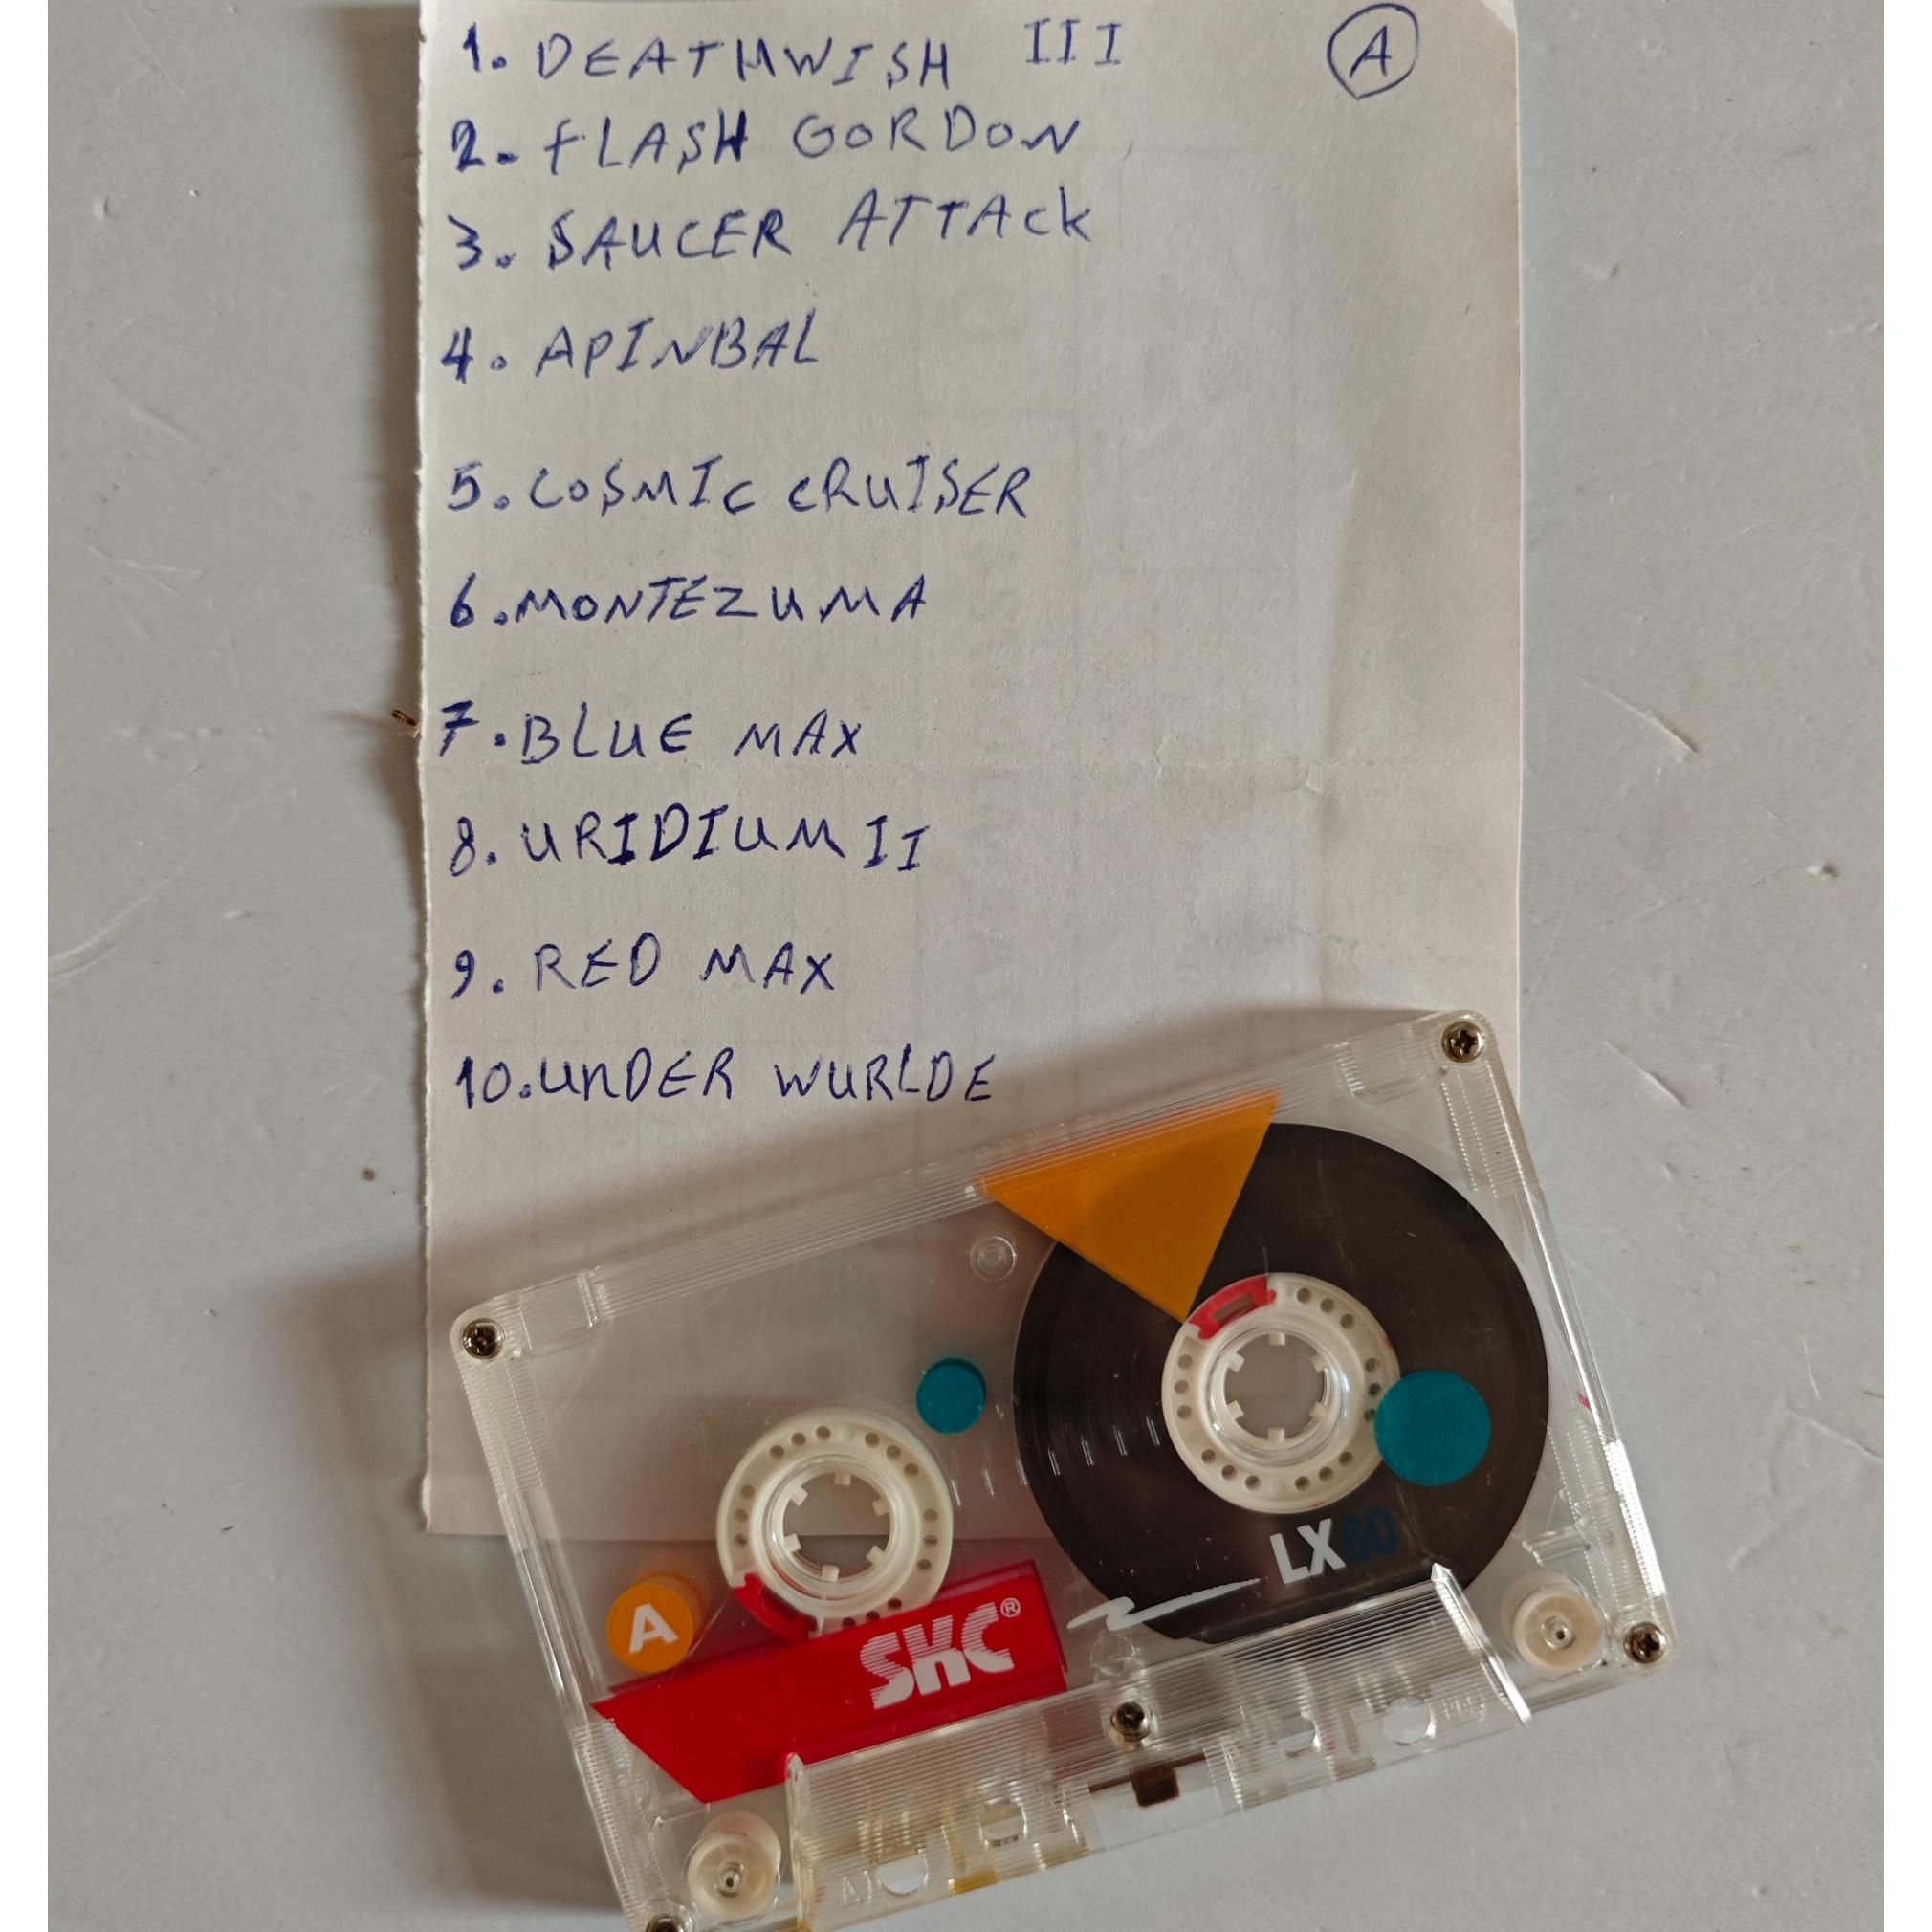 1. DEATHWISH III A
2. FLASH GORDON
3. SAUCER ATTACK
4. APINBAL
5. COSMIC CRUISER
6. MONTEZUMA
7. BLUE MAX
8. URIDIUM II
9. RED MAX
10. UNDER WURLDE
LX60
A
SKC®